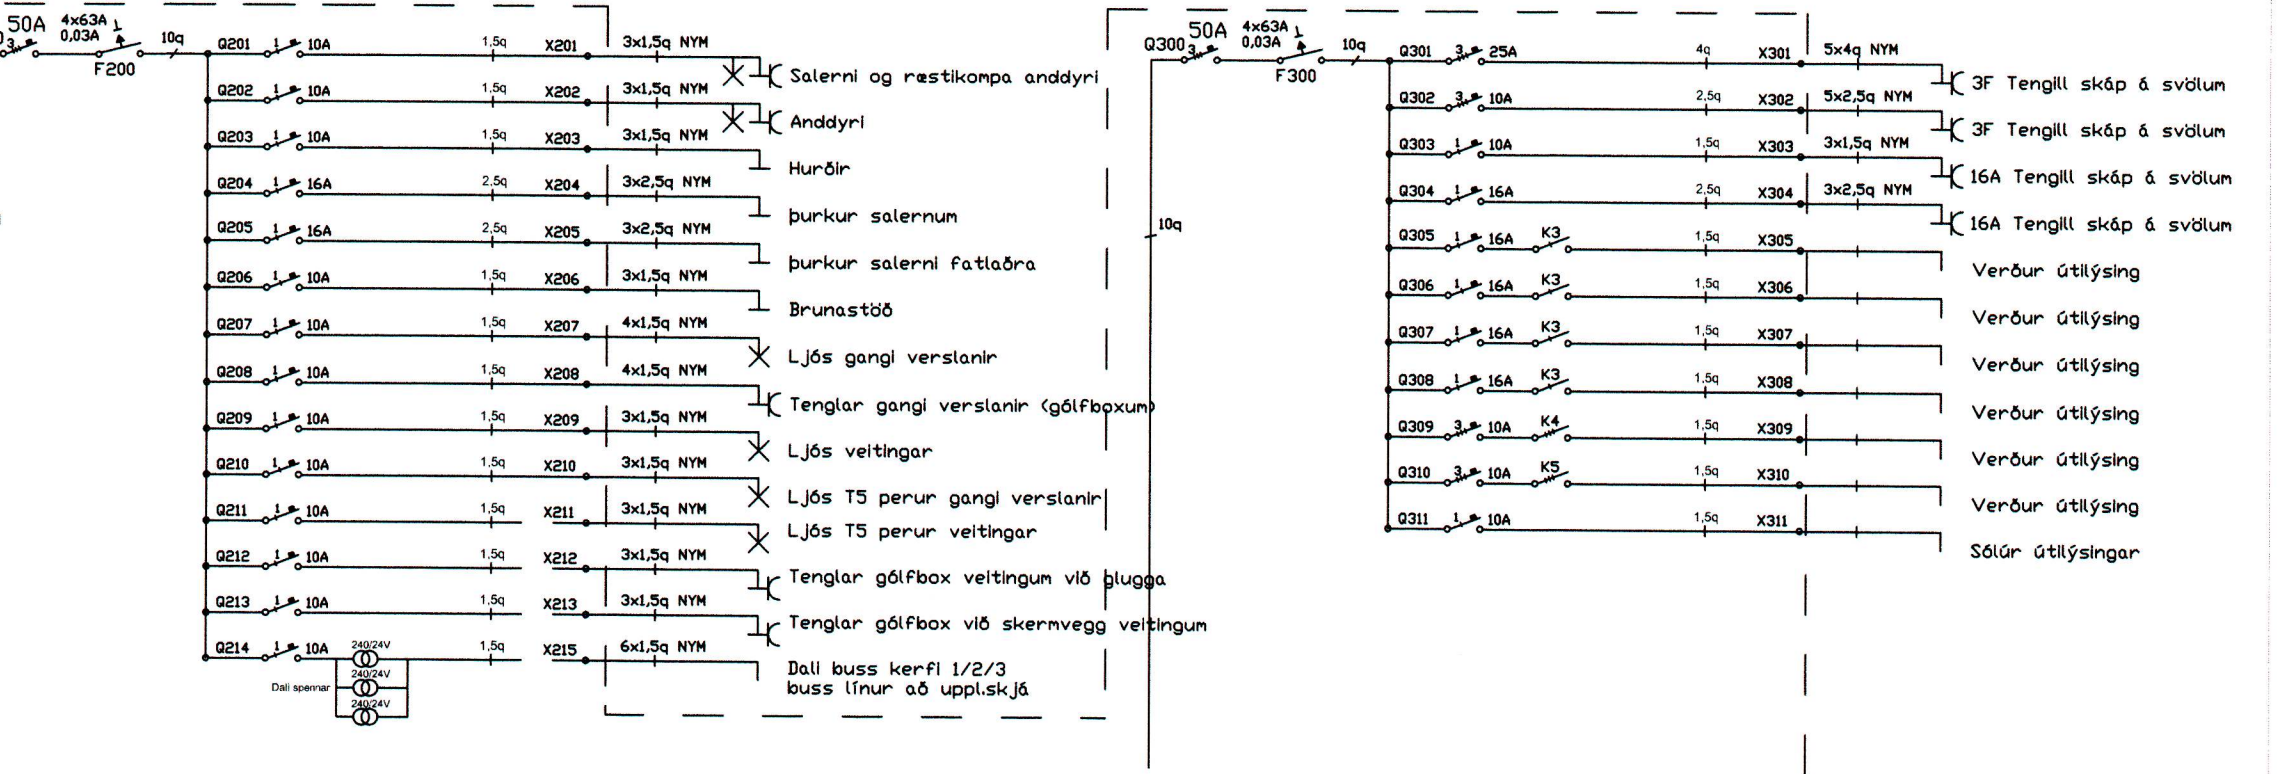 50A 4x63A 0,03A 10q
3 F200
Q201 1 10A 1,5q X201 3x1,5q NYM Salerni og ræstikompa anddyri
Q202 1 10A 1,5q X202 3x1,5q NYM Anddyri
Q203 1 10A 1,5q X203 3x1,5q NYM Hurðir
Q204 1 16A 2,5q X204 3x2,5q NYM þurkur salernum
Q205 1 16A 2,5q X205 3x2,5q NYM þurkur salerni fatlaðra
Q206 1 10A 1,5q X206 3x1,5q NYM Brunastöð
Q207 1 10A 1,5q X207 4x1,5q NYM Ljós gangi verslanir
Q208 1 10A 1,5q X208 4x1,5q NYM Tenglar gangi verslanir (gólfboxum)
Q209 1 10A 1,5q X209 3x1,5q NYM Ljós veitingar
Q210 1 10A 1,5q X210 3x1,5q NYM Ljós T5 perur gangi verslanir
Q211 1 10A 1,5q X211 3x1,5q NYM Ljós T5 perur veitingar
Q212 1 10A 1,5q X212 3x1,5q NYM Tenglar gólfbox veitingum við glugga
Q213 1 10A 1,5q X213 3x1,5q NYM Tenglar gólfbox við skermvegg veitingum
Q214 1 10A 240/24V 1,5q X215 6x1,5q NYM Dali buss kerfi 1/2/3
buss línur að uppl.skjá
240/24V
Dali spennar
240/24V
Q300 3 50A 4x63A 0,03A 10q
F300
10q
Q301 3 25A 4q X301 5x4q NYM 3F Tengill skáp á svölum
Q302 3 10A 2,5q X302 5x2,5q NYM 3F Tengill skáp á svölum
Q303 1 10A 1,5q X303 3x1,5q NYM 16A Tengill skáp á svölum
Q304 1 16A 2,5q X304 3x2,5q NYM 16A Tengill skáp á svölum
Q305 1 16A K3 1,5q X305 Verður útilýsing
Q306 1 16A K3 1,5q X306 Verður útilýsing
Q307 1 16A K3 1,5q X307 Verður útilýsing
Q308 1 16A K3 1,5q X308 Verður útilýsing
Q309 3 10A K4 1,5q X309 Verður útilýsing
Q310 3 10A K5 1,5q X310 Verður útilýsing
Q311 1 10A 1,5q X311 Sólúr útilýsingar